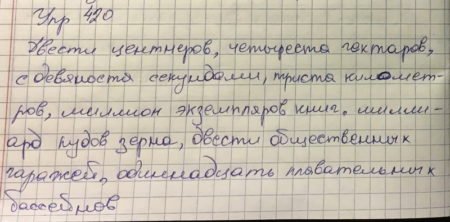 Упр 420
Двести центнеров, четыреста гектаров,
с девяноста секундами, триста километ-
ров, миллион экземпляров книг. милли-
ард пудов зерна, двести общественных
гаражей, одиннадцать плавательных
бассейнов